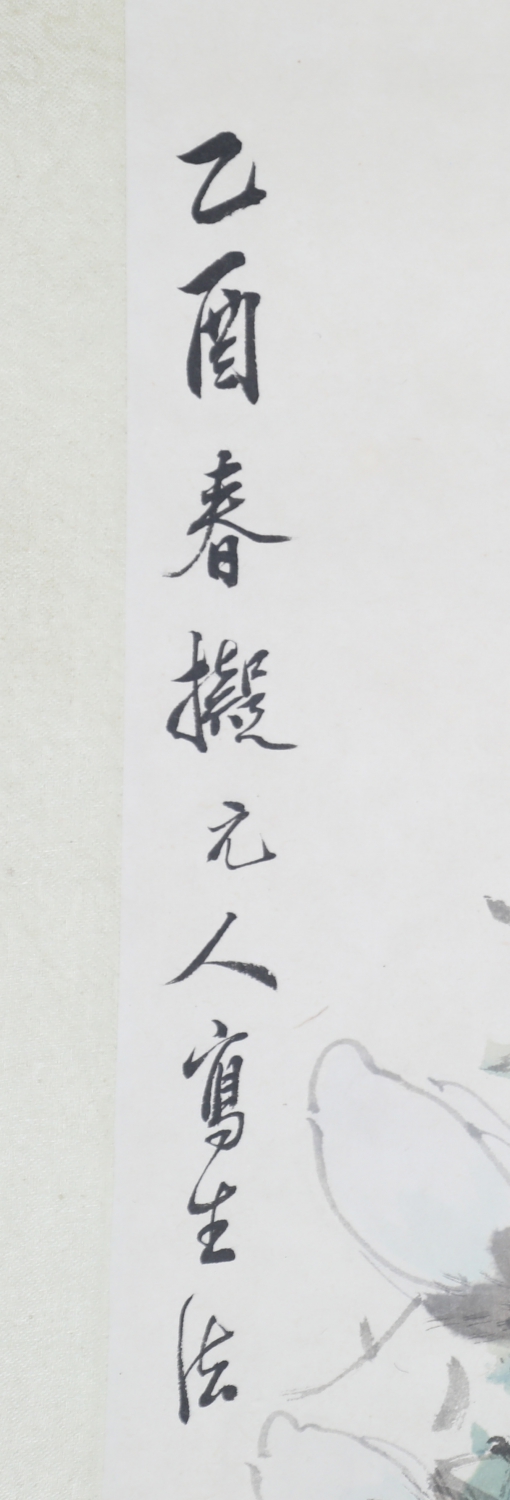 乙酉春擬元人寫生法